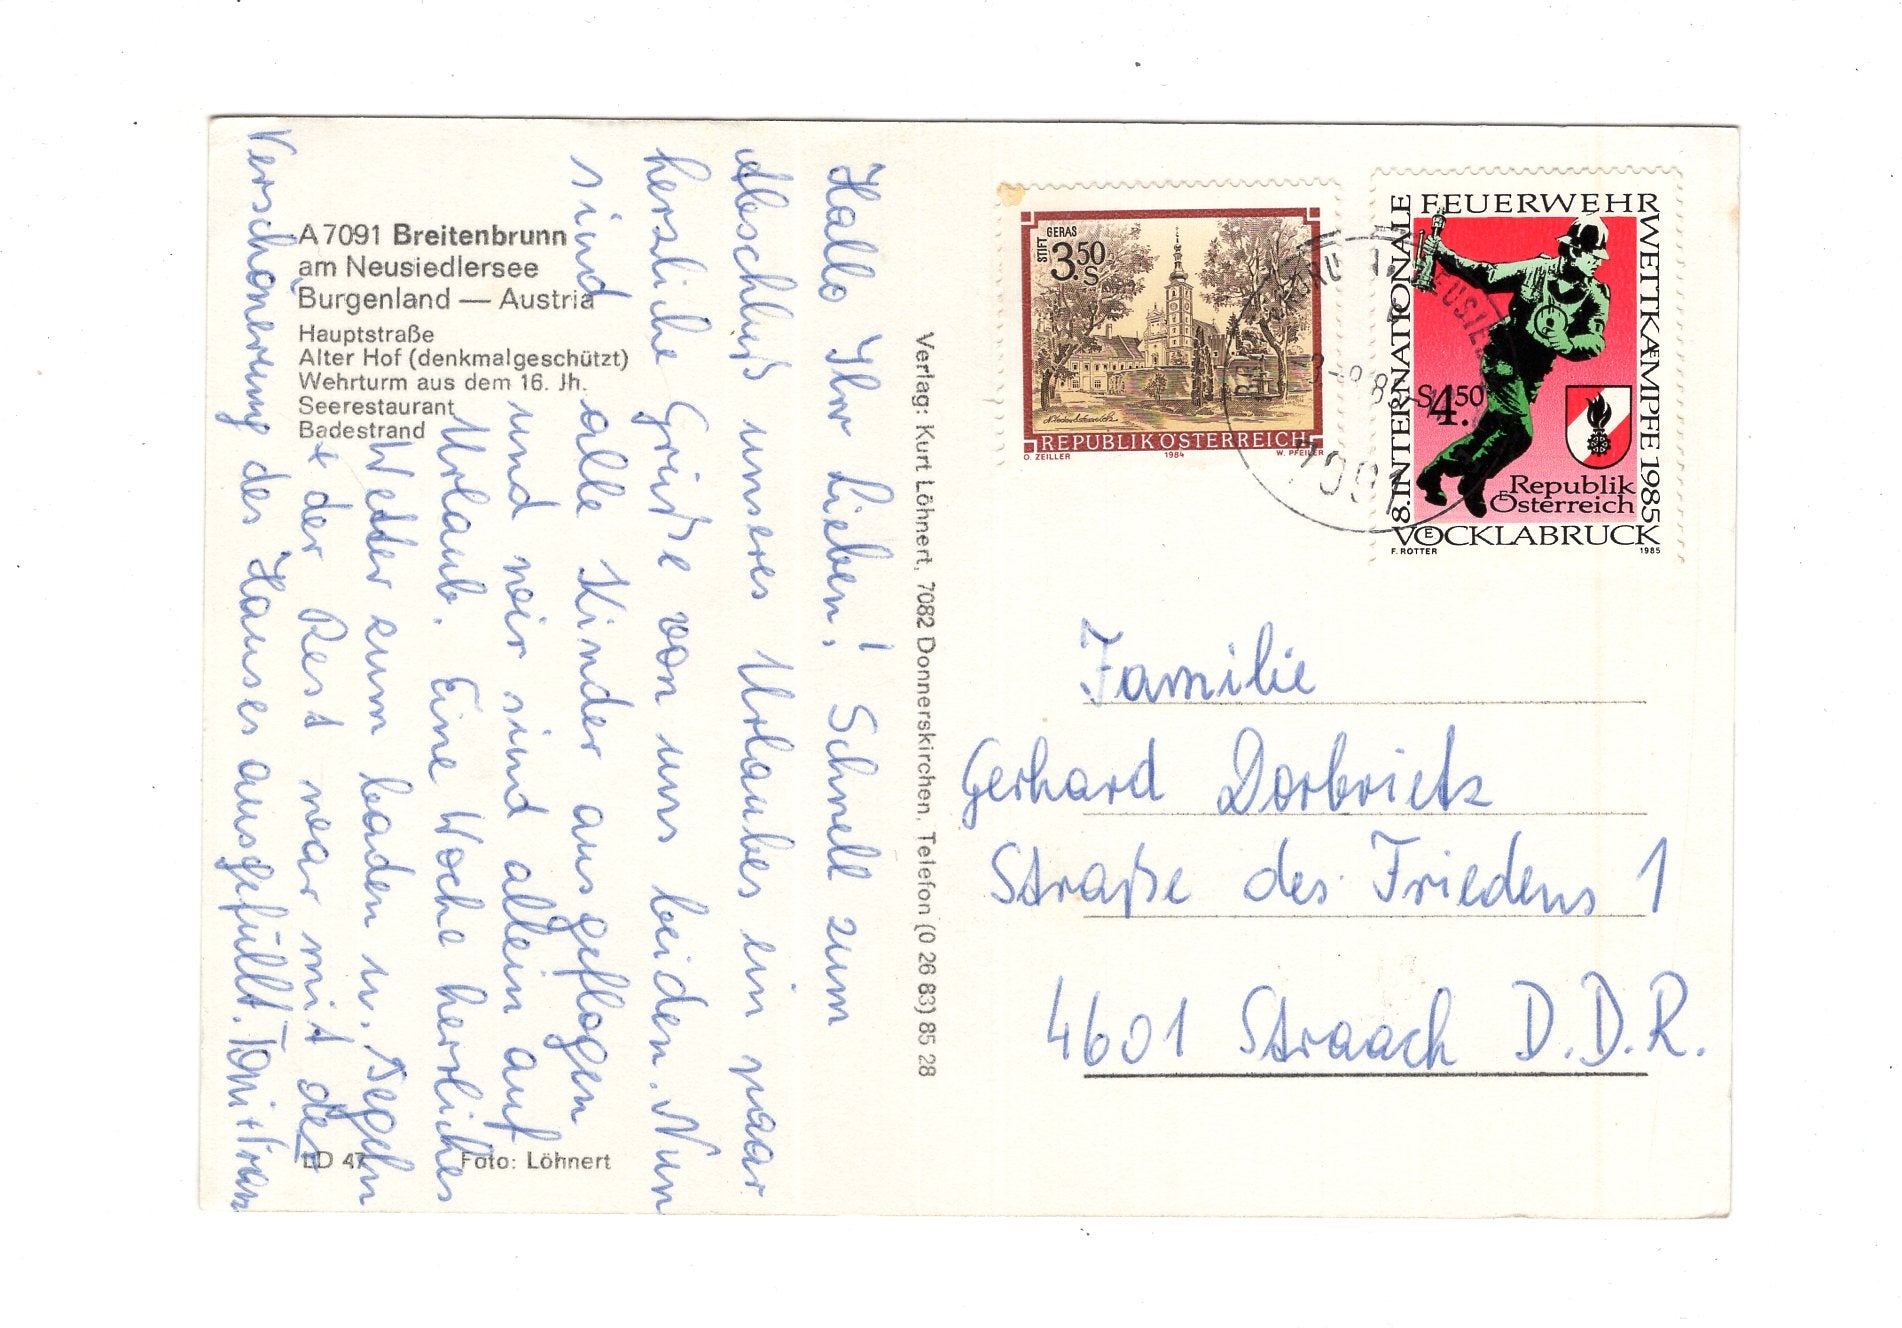 A 7091 Breitenbrunn
am Neusiedlersee
Burgenland — Austria
Hauptstraße
Alter Hof (denkmalgeschützt)
Wehrturm aus dem 16. Jh.
Seerestaurant
Badestrand
LD 47
Foto: Löhnert
Hallo Ihr Lieben! Schnell zum
Abschluß unseres Urlaubes ein paar
herzliche Grüße von uns beiden. Nun
sind alle Kinder ausgeflogen
und wir sind allein auf
Urlaub. Eine Woche herrliches
Wetter zum baden u. segeln
der Rest war mit der
Verschönerung des Hauses ausgefüllt.
Verlag: Kurt Löhnert, 7082 Donnerskirchen, Telefon (0 26 83) 85 28
STIFT GERAS
3.50 S
REPUBLIK ÖSTERREICH
O. ZEILLER 1984 W. PFEILER
8. INTERNATIONALE FEUERWEHRWETTKÆMPFE 1985
VOECKLABRUCK
S 4.50
Republik
Oesterreich
F. ROTTER 1985
7091
Familie
Gerhard Dorbrietz
Straße des Friedens 1
4601 Straach D.D.R.